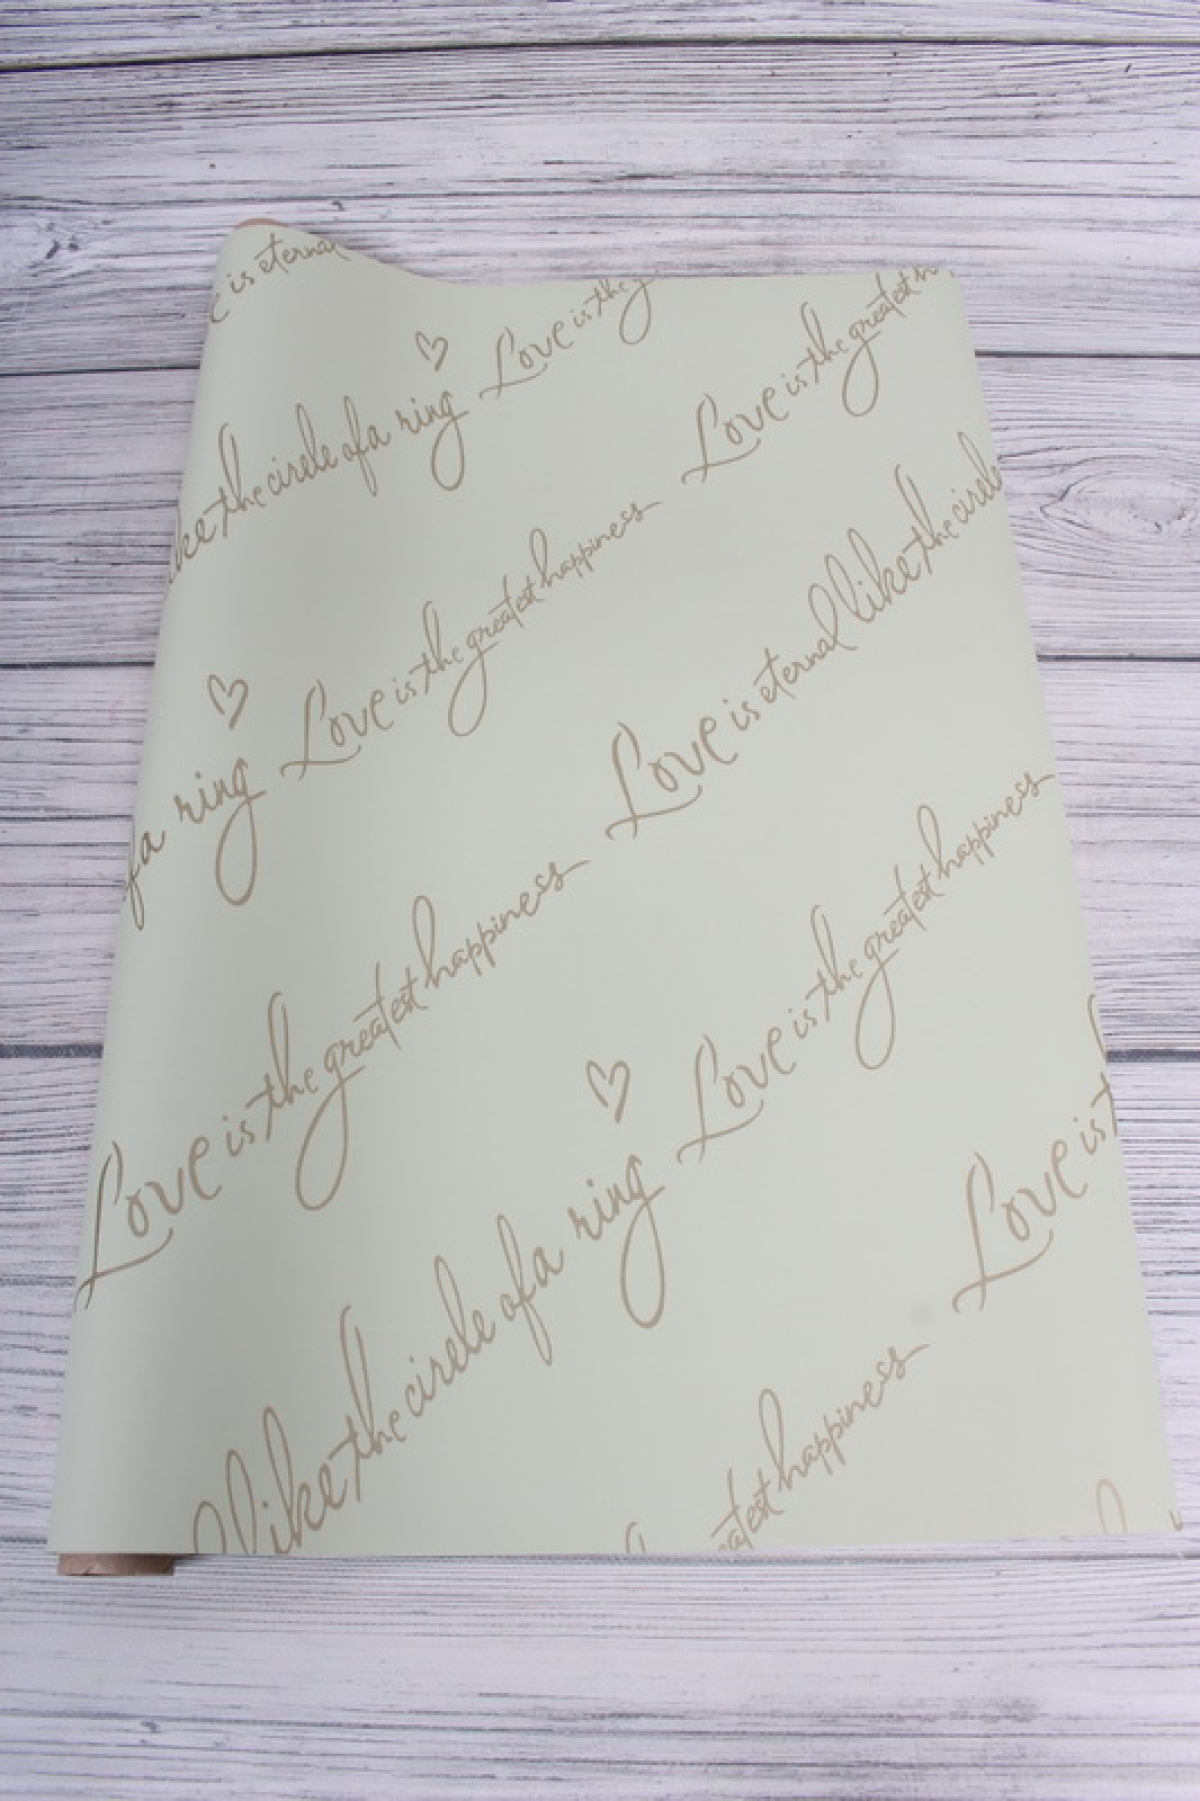 is eternal
like the circle of a ring Love is the
Love is the greatest
a ring Love is the greatest happiness
Love is eternal like the circle
Love is the greatest happiness
like the circle of a ring Love is the greatest happiness
happiness Love is